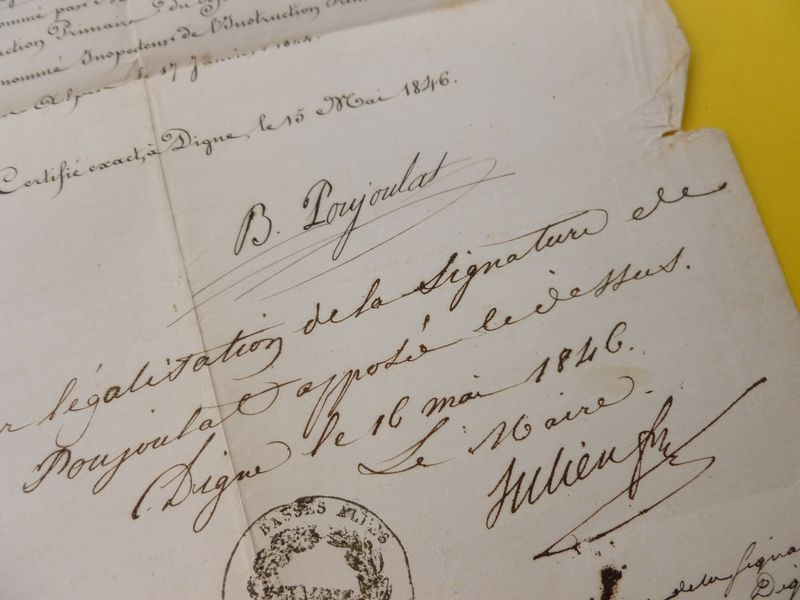 nommé par
ction Primaire du
nommé Inspecteur de l'Instruction Prim
Alpes le 17 Janvier
Certifié exact, à Digne, le 15 Mai 1846.
B. Poujoulat
r légalisation de la signature de
Poujoulat apposée ci dessus.
Digne le 16 mai 1846.
Le Maire.
Julien
BASSES ALPES
de la signa
Dig